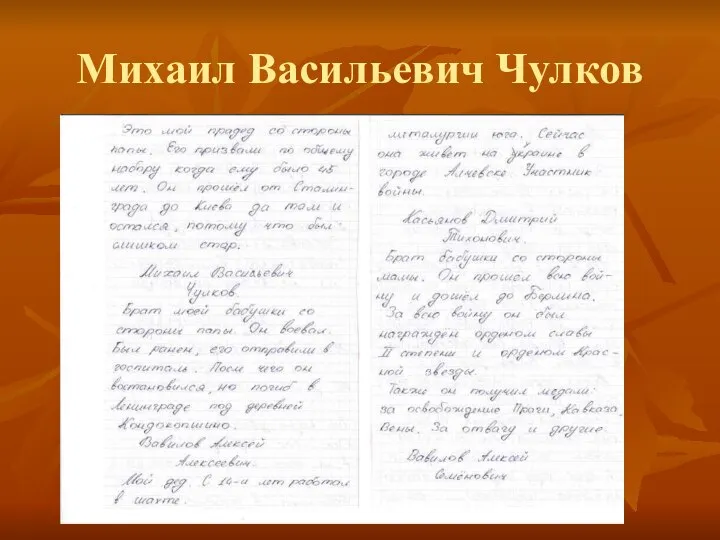 Михаил Васильевич Чулков
Это мой прадед со стороны
папы. Его призвали по общему
набору когда ему было 45
лет. Он прошёл от Сталин-
града до Киева да там и
остался, потому что был
слишком стар.
Михаил Васильевич
Чулков.
Брат моей бабушки со
стороны папы. Он воевал.
Был ранен, его отправили в
госпиталь. После чего он
востановился, но погиб в
Ленинграде под деревней
Кондокопшино.
Вавилов Алексей
Алексеевич.
Мой дед. С 14-и лет работал
в шахте.
металургии юга. Сейчас
она живёт на украине в
городе Алчевске Участник
войны.
Касьянов Дмитрий
Тихонович.
Брат бабушки со стороны
мамы. Он прошел всю вой-
ну и дошёл до Берлина.
За всю войну он был
награжден орденом славы
II степени и орденом Крас-
ной звезды.
Также он получил медали:
за освобождение Праги, Кавказа,
Вены. За отвагу и другие.
Вавилов Алексей
Семёнович